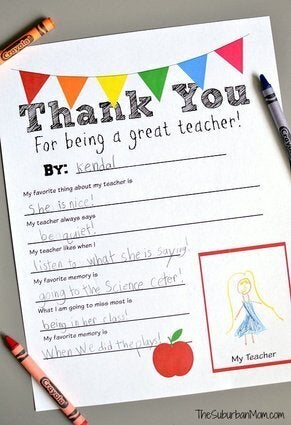 Thank You
For being a great teacher!
By: Kendal
My favorite thing about my teacher is
She is nice!
My teacher always says
be quiet!
My teacher likes when I
listen to what she is saying!
My favorite memory is
going to the Science Ceter!
What I am going to miss most is
being in her class!
My favorite memory is
When We did the plays!
My Teacher
Crayola
TheSuburbanMom.com